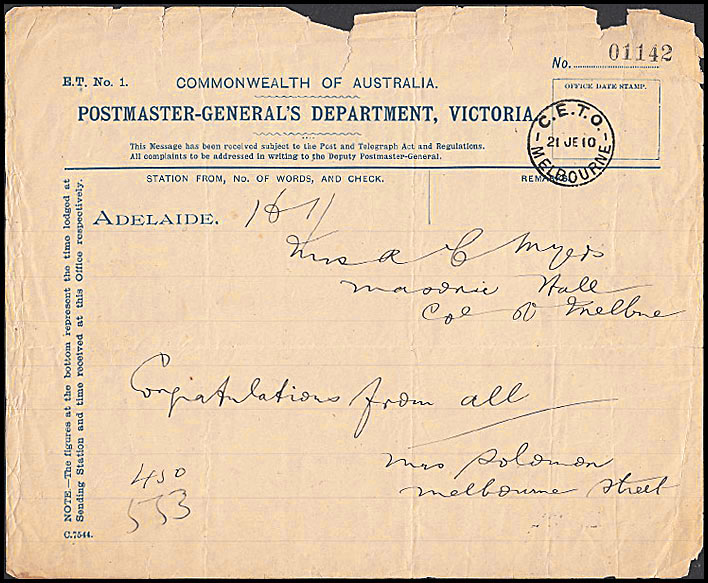 No. 01142
E.T. No. 1.
COMMONWEALTH OF AUSTRALIA.
OFFICE DATE STAMP.
POSTMASTER-GENERAL'S DEPARTMENT, VICTORIA.
C.E.T.O.
21 JE 10
MELBOURNE
This Message has been received subject to the Post and Telegraph Act and Regulations.
All complaints to be addressed in writing to the Deputy Postmaster-General.
STATION FROM, No. OF WORDS, AND CHECK.
REMARKS
ADELAIDE.
Mrs & C Myers
Masonic Hall
Col St Melbne
Congratulations from all
Mrs Solomon
Melbourne Street
450
553
NOTE.—The figures at the bottom represent the time lodged at
Sending Station and time received at this Office respectively.
C.7544.